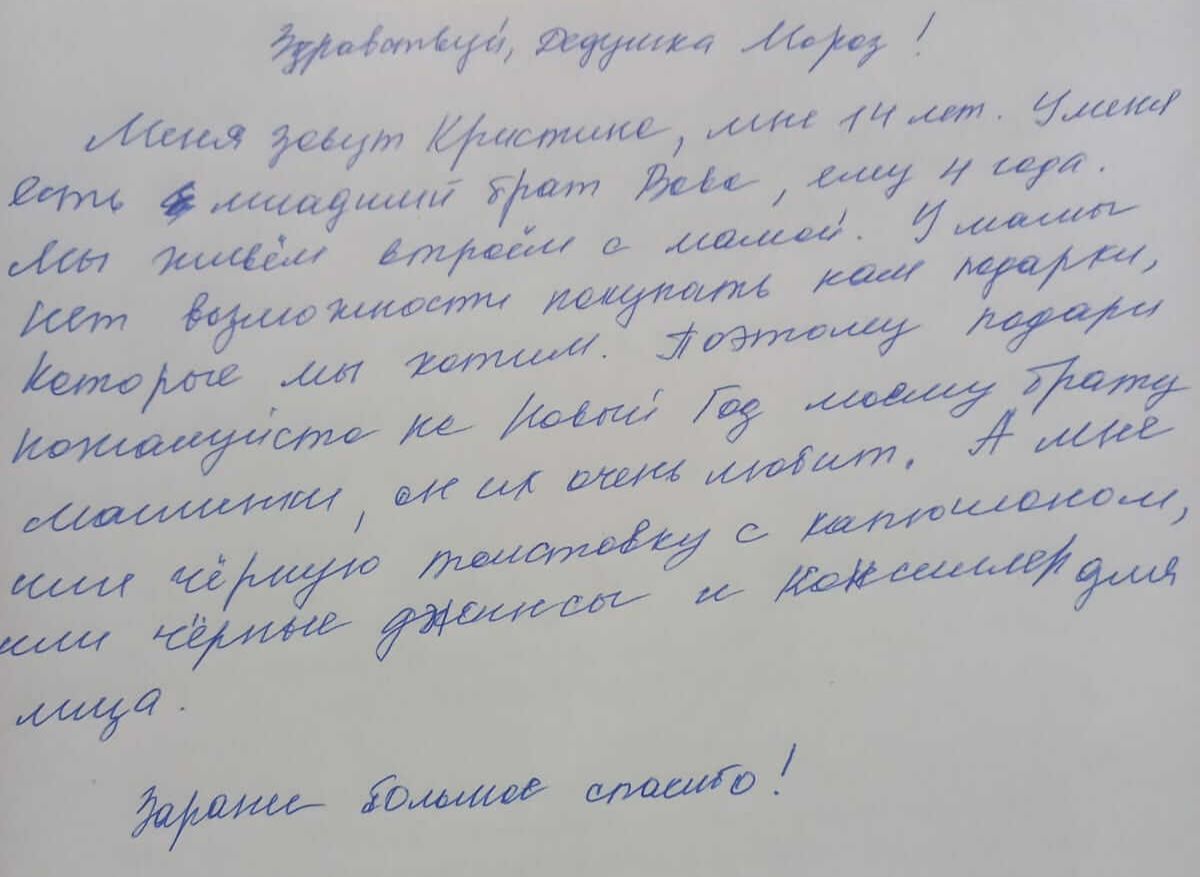 Здравствуй, Дедушка Мороз!
Меня зовут Кристина, мне 14 лет. У меня
есть младший брат Вова, ему 4 года.
Мы живём втроём с мамой. У мамы
нет возможности покупать нам подарки,
которые мы хотим. Поэтому подари
пожалуйста на Новый Год моему брату
машинки, он их очень любит. А мне
или чёрную толстовку с капюшоном,
или чёрные джинсы и консиллер для
лица.
Заранее большое спасибо!